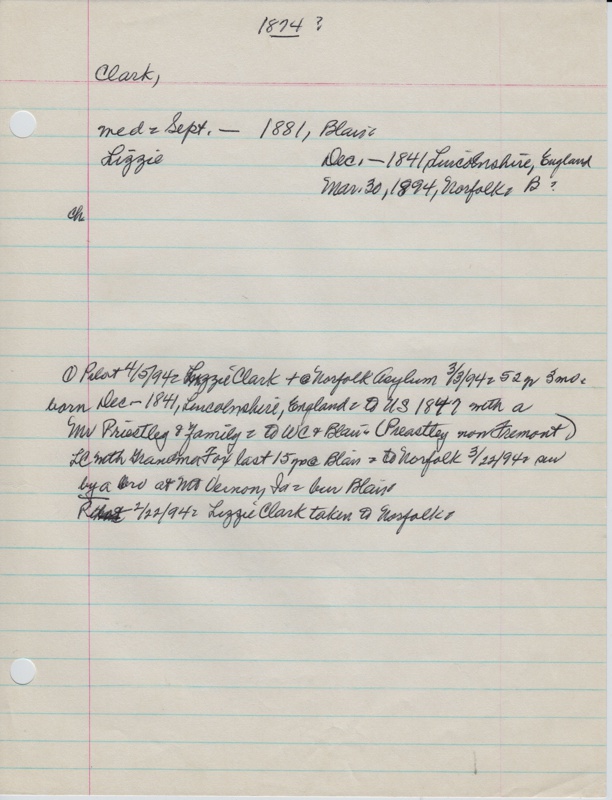 1874 ?
Clark,
med = Sept. — 1881, Blair =
Lizzie Dec. — 1841, Lincolnshire, England
Mar. 30, 1894, Norfolk = B ?
ch.
① Pilot 4/5/94 = Lizzie Clark + @ Norfolk Asylum 3/3/94 = 52 yr 3 mo =
born Dec — 1841, Lincolnshire, England = to US 1847 with a
Mr Priestley & family = to WC & Blair = (Preastley now Fremont)
LC with Grandma Fox last 15 yr @ Blair = to Norfolk 3/22/94 = sur
by a bro at Mt Vernon, Ia = bur Blair
2/22/94 = Lizzie Clark taken to Norfolk =